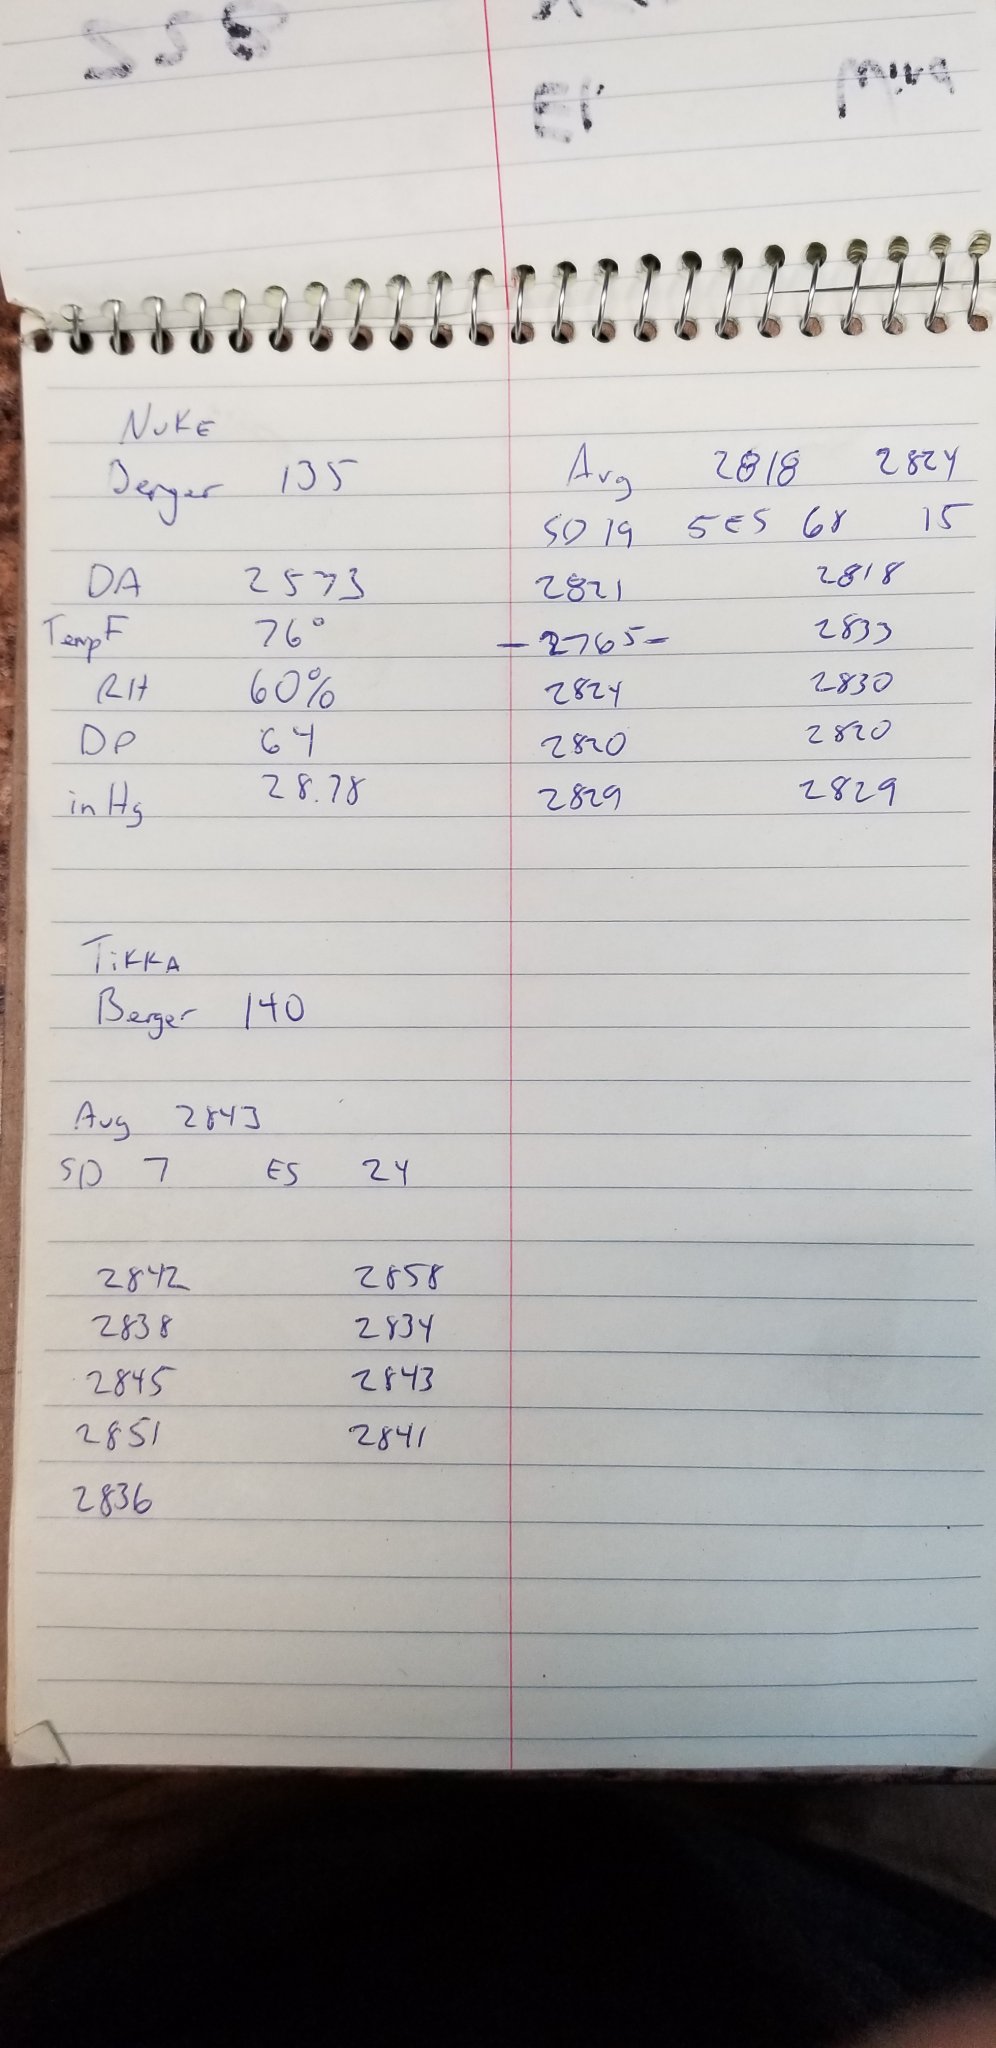 NUKE
Berger 135
Avg 2818 2824
SD 19 5 ES 68 15
DA 2573
2821 2818
Temp F 76°
-2765- 2833
RH 60%
2824 2830
DP 64
2820 2820
in Hg 28.78
2829 2829
TiKKA
Berger 140
Avg 2843
SD 7 ES 24
2842 2858
2838 2834
2845 2843
2851 2841
2836